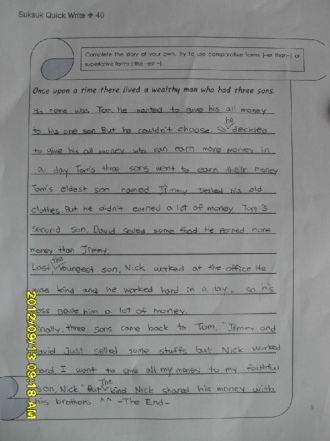 Suksuk Quick Write # 40
Complete the story of your own. Try to use comparative forms [-er than~] or
superlative forms [the -est ~].
Once upon a time there lived a wealthy man who had three sons.
His name was Tom. He wanted to give his all money
to his one son. But he couldn't choose. So he decided
to give his all money who can earn more money in
a day. Tom's three sons went to earn their money
Tom's eldest son named Jimmy selled his old
clothes. But he didn't earned a lot of money. Tom's
second son, David selled some food. He earned more
money than Jimmy.
Last the youngest son, Nick worked at the office. He
was kind and he worked hard in a day, so his
gave him a lot of money.
Finally, three sons came back to Tom. "Jimmy and
David just selled some stuffs but Nick worked
hard. I want to give all my money to my faithful
son, Nick" But The kind Nick shared his money with
his brothers. ^^ -The End-
2012/09/13 09:18 AM